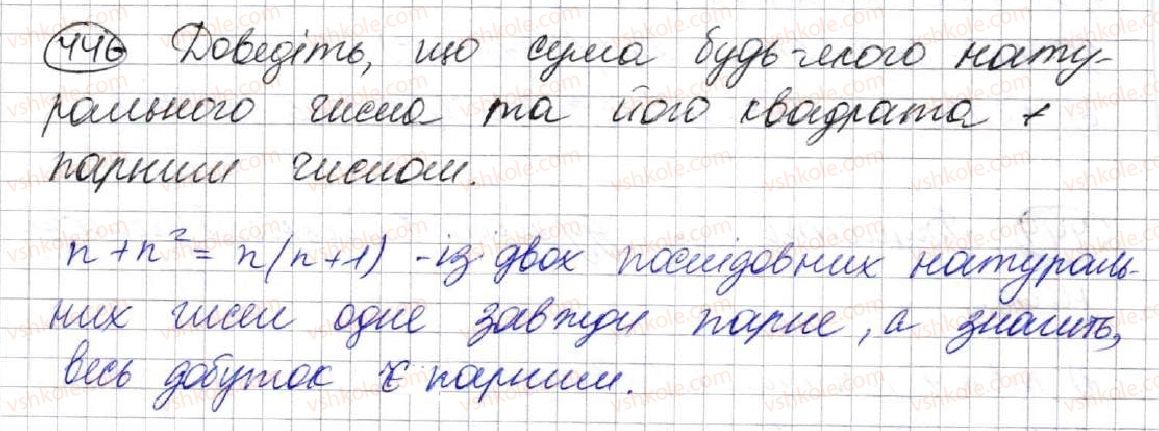 446 Доведіть, що сума будь-якого нату-
рального числа та його квадрата є
парним числом.
n + n² = n(n+1) - із двох послідовних натураль-
них чисел одне завжди парне, а значить,
весь добуток є парним.